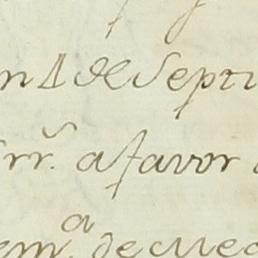 n 1 de Septi
rr. a favor
em.ª de Mec